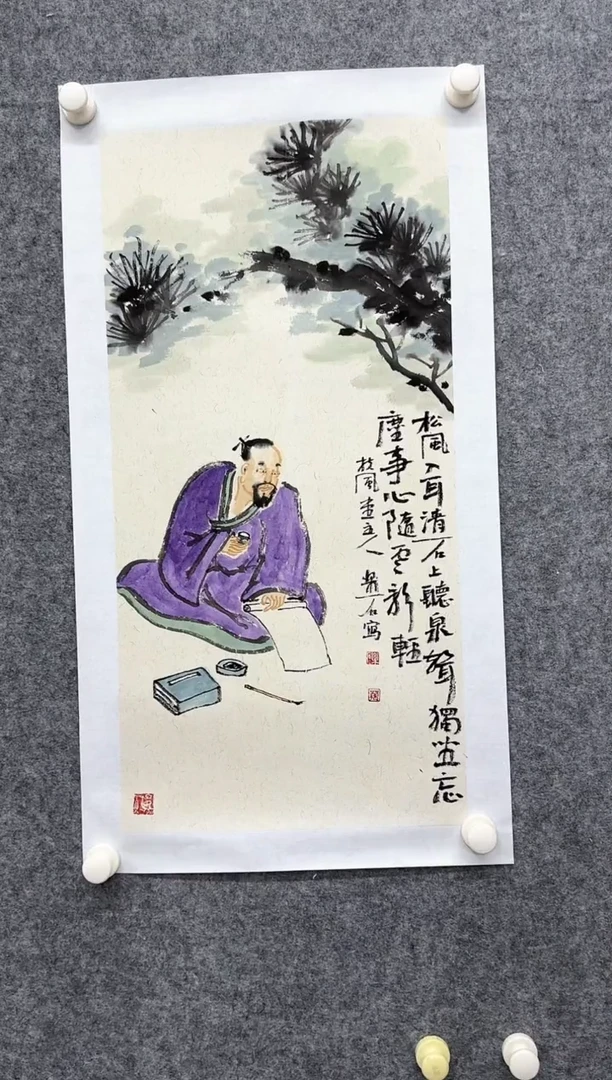 松風入耳清石上聽泉聲獨坐忘
塵事心隨雲影輕
風主人石寫